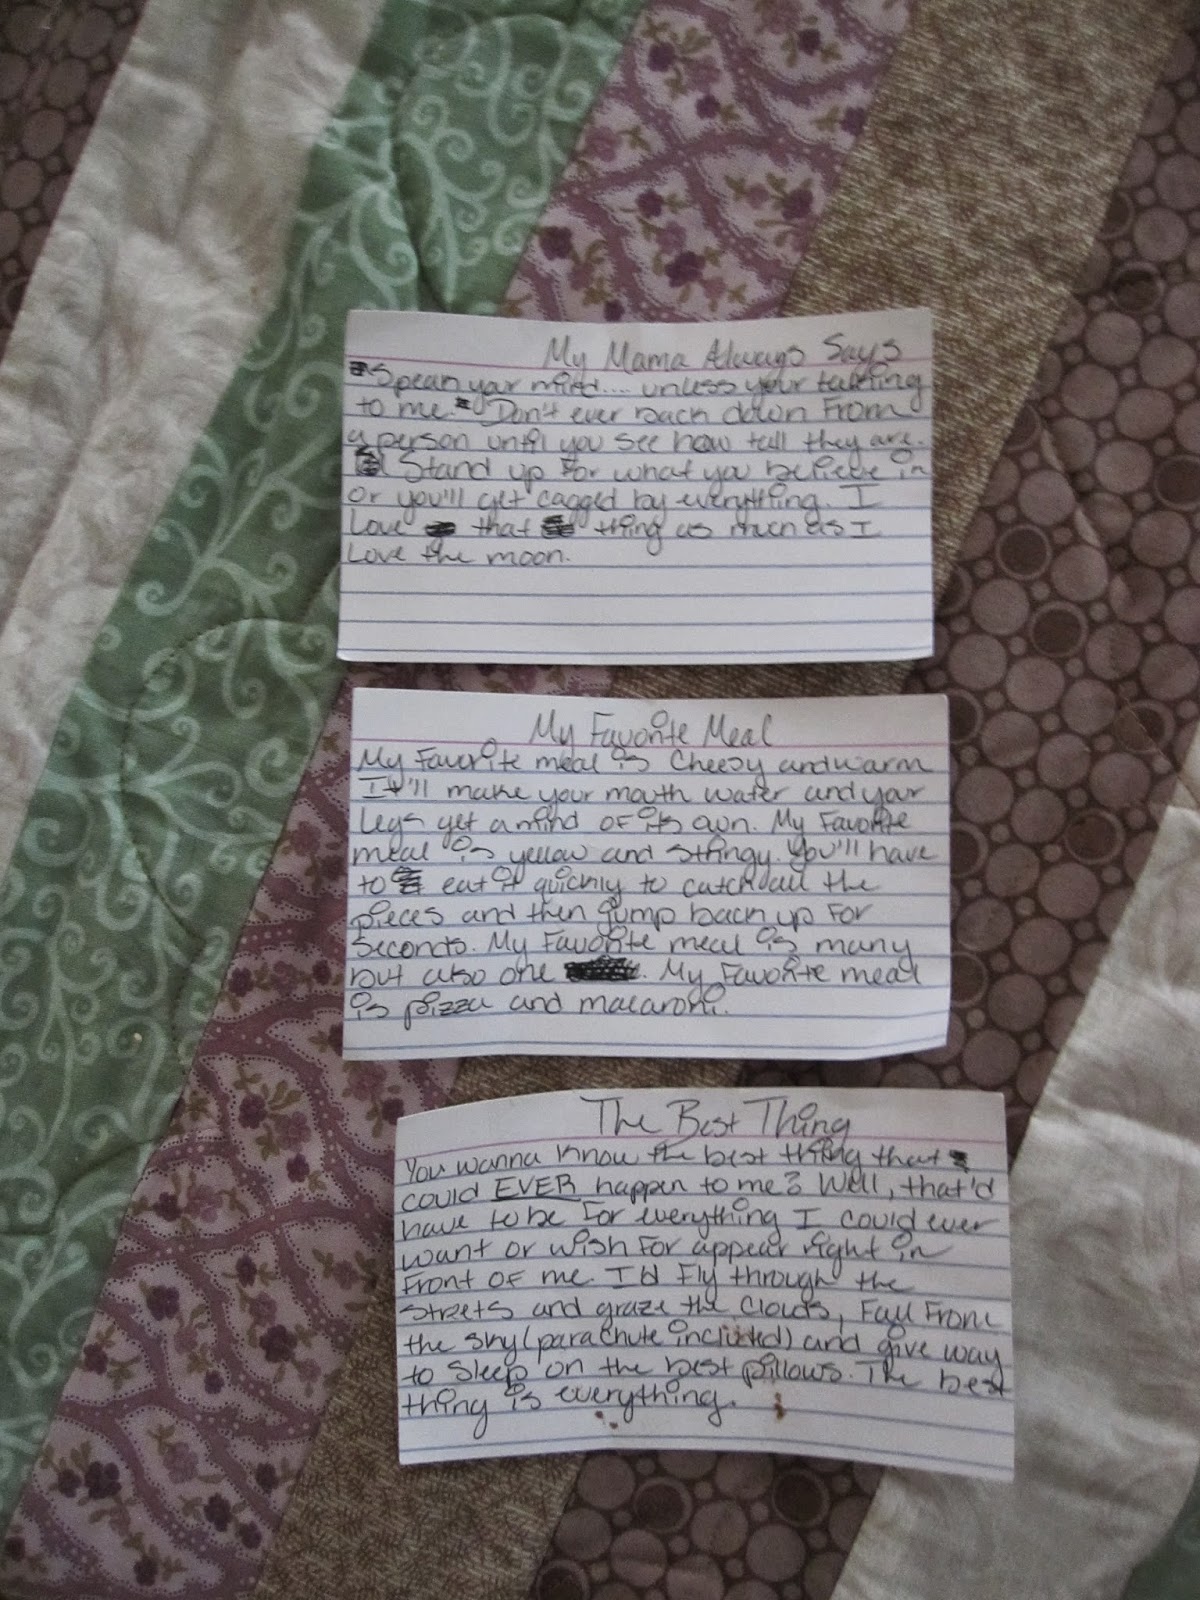 My Mama Always Says
Speak your mind.... unless your talking
to me. Don't ever back down from
a person until you see how tall they are.
Stand up for what you believe in
or you'll get cagged by everything. I
Love that thing as much as I
Love the moon.
My Favorite Meal
My Favorite meal is cheesy and warm
It'll make your mouth water and your
Legs get a mind of its own. My Favorite
meal is yellow and stringy. You'll have
to eat it quickly to catch all the
pieces and then jump back up for
seconds. My Favorite meal is many
but also one . My Favorite meal
is pizza and macaroni.
The Best Thing
You wanna know the best thing that
could EVER happen to me? Well, that'd
have to be for everything I could ever
want or wish for appear right in
front of me. I'd fly through the
streets and graze the clouds, Fall From
the sky (parachute included) and give way
to sleep on the best pillows. The best
thing is everything.